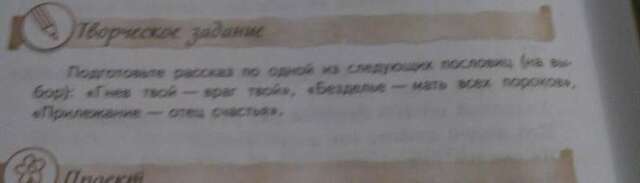 Творческое задание
Подготовьте рассказ по одной из следующих пословиц (на вы-
бор): «Гнев твой — враг твой», «Безделье — мать всех пороков»,
«Прилежание — отец счастья».
Проект